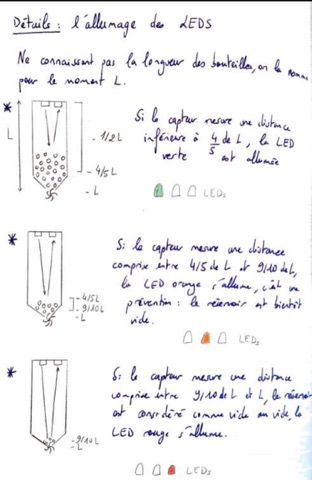 Détails : l'allumage des LEDS
Ne connaissant pas la longueur des bouteilles, on la nomme
pour le moment L.
Si le capteur mesure une distance
inférieure à 4/5 de L, la LED
verte est allumée
L
- 1/2L
- 4/5 L
- L
LEDs
Si le capteur mesure une distance
comprise entre 4/5 de L et 9/10 de L,
la LED orange s'allume, c'est une
prévention : le réservoir est bientôt
vide.
- 4/5L
- 9/10L
- L
LEDs
Si le capteur mesure une distance
comprise entre 9/10 de L et L, le réservoir
est considéré comme vide ou vide, la
LED rouge s'allume.
- 9/10L
- L
LEDs